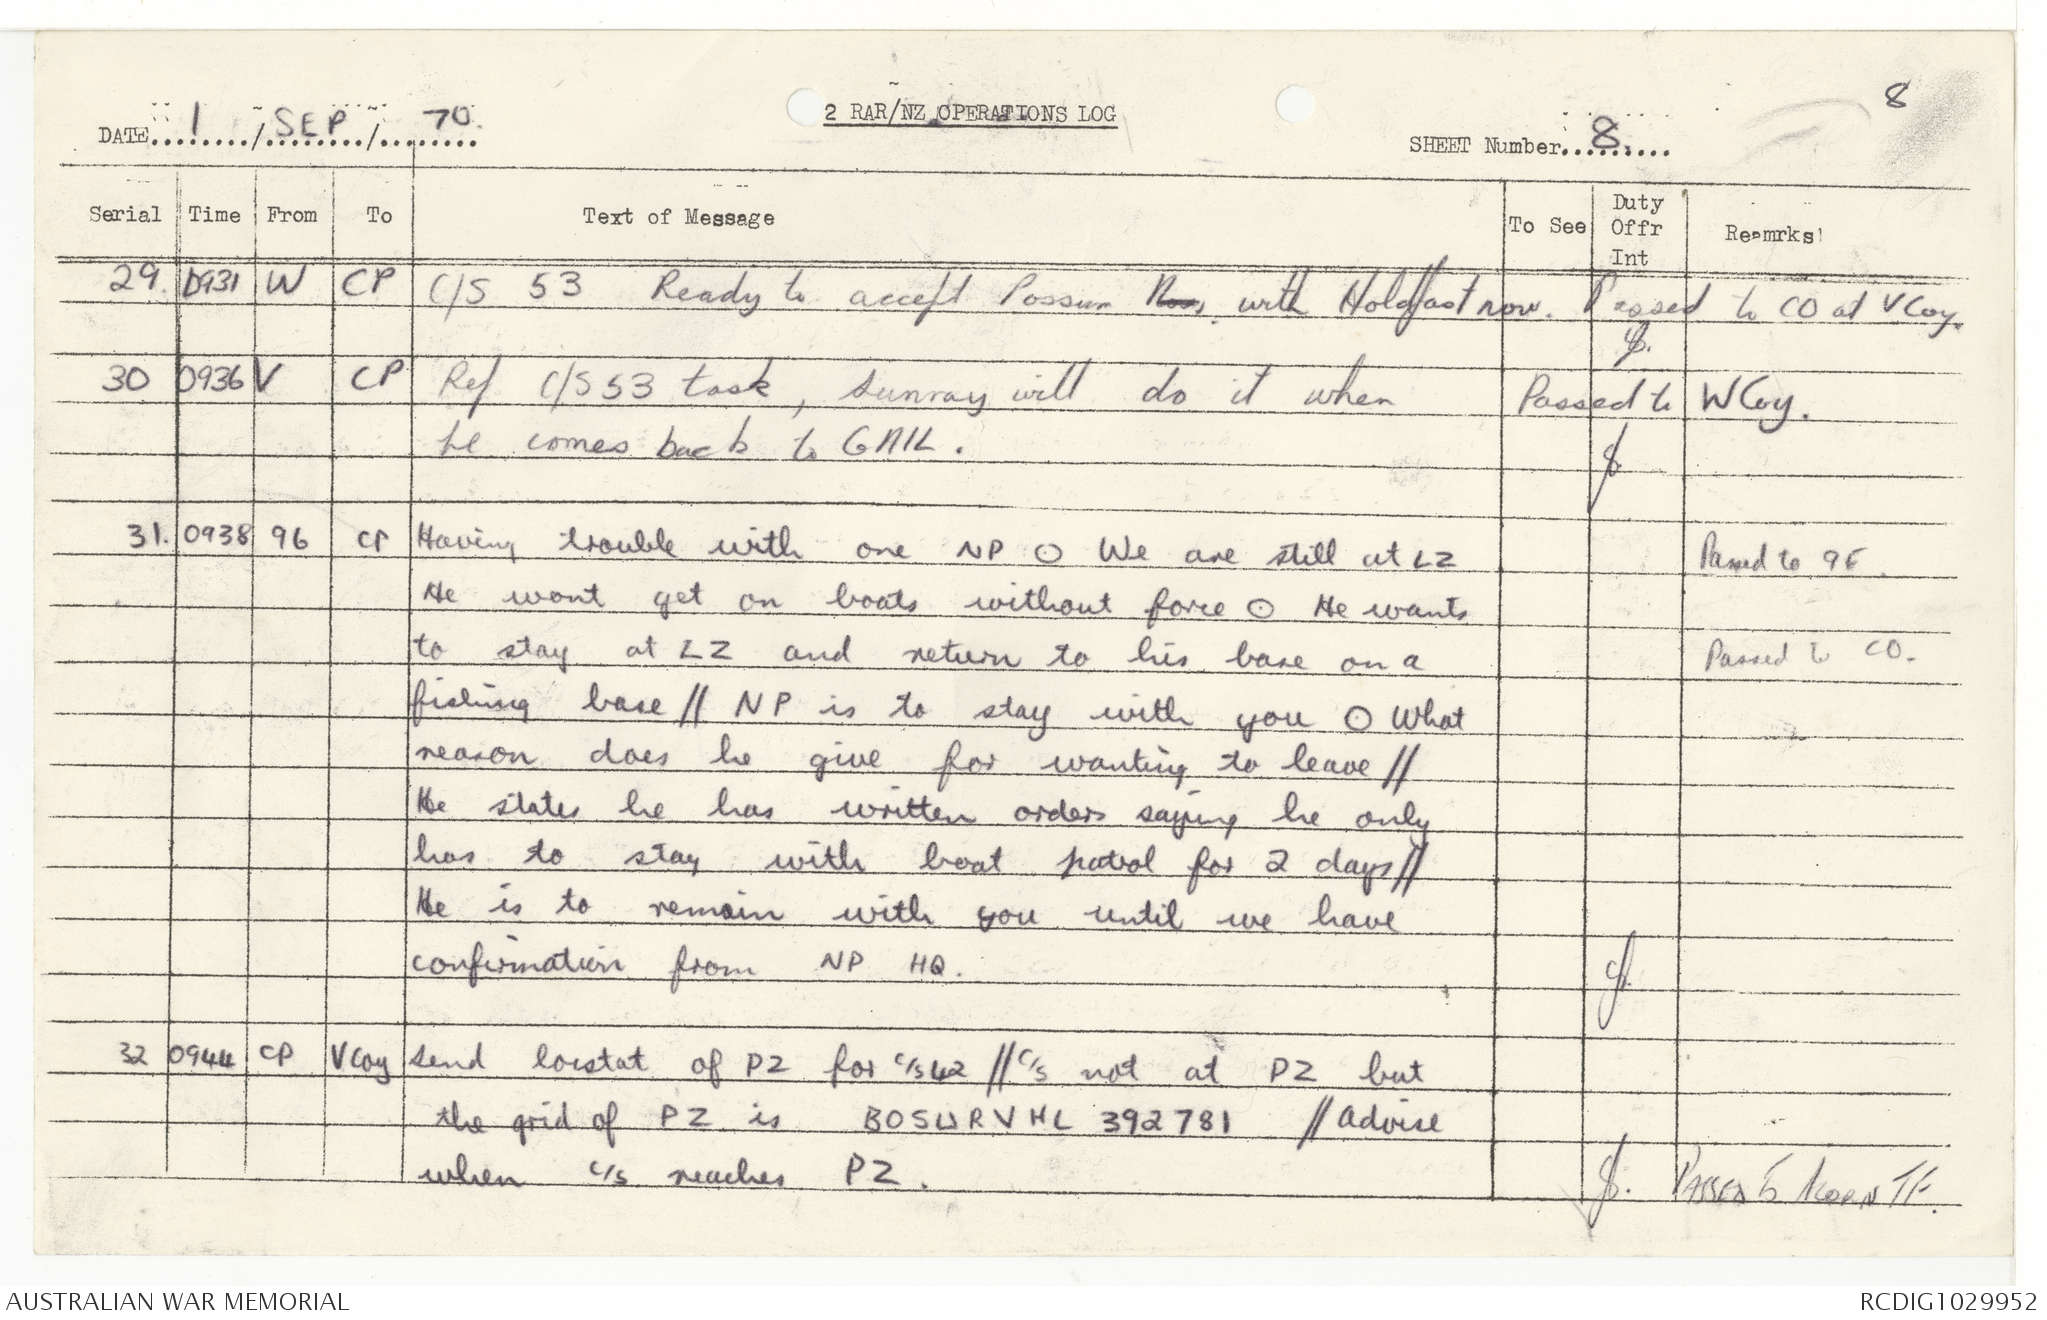 8
DATE 1 / SEP / 70.
2 RAR/NZ OPERATIONS LOG
SHEET Number 8.
Serial Time From To Text of Message To See Duty Offr Int Reamrks
29. 0931 W CP C/S 53 Ready to accept Possum with Holdfast now. Passed to CO at V Coy.
30 0936 V CP Ref C/S 53 task, Sunray will do it when Passed to W Coy.
he comes back to GAIL.
31. 0938 96 CP Having trouble with one NP ⊙ We are still at LZ Passed to 9E.
He wont get on boats without force ⊙ He wants
to stay at LZ and return to his base on a Passed to CO.
fishing base // NP is to stay with you ⊙ What
reason does he give for wanting to leave //
He states he has written orders saying he only
has to stay with boat patrol for 2 days //
He is to remain with you until we have
confirmation from NP HQ.
32 0944 CP V Coy Send locstat of PZ for C/S 42 // C/S not at PZ but
the grid of PZ is BOSWRVHL 392781 // Advise
when C/S reaches PZ. PASSED To ACORN TF.
AUSTRALIAN WAR MEMORIAL
RCDIG1029952